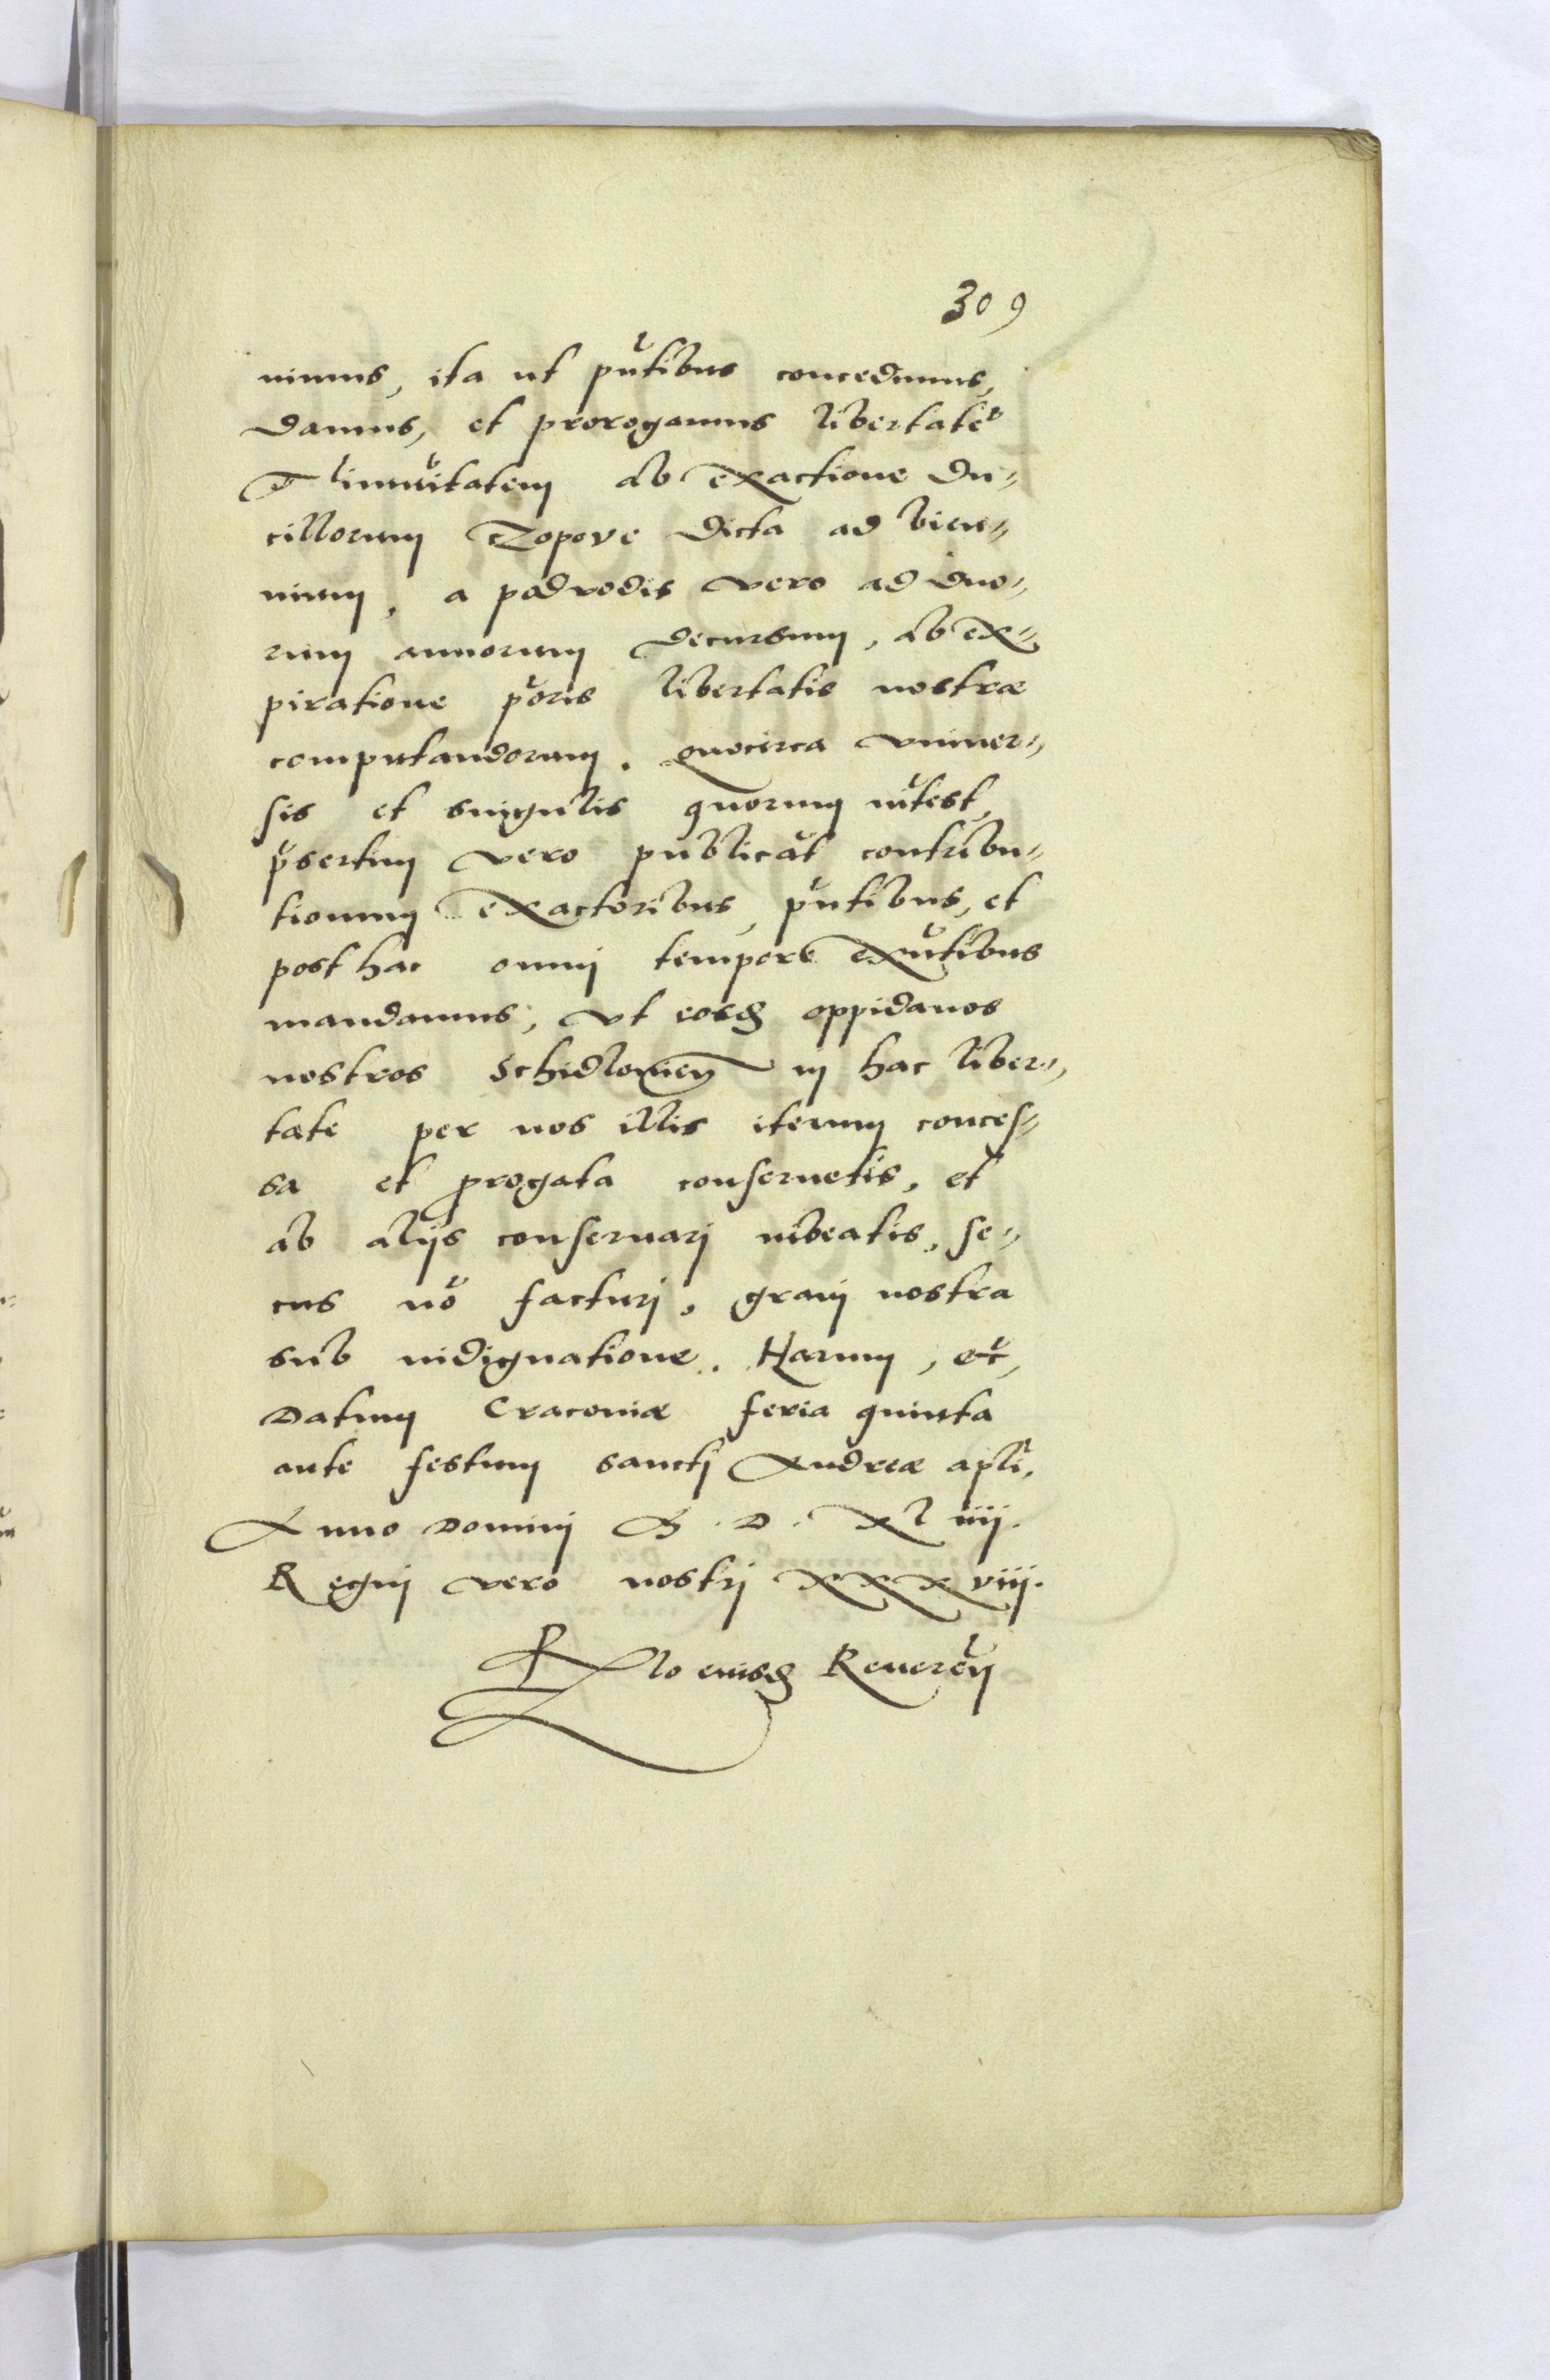 309
nimus, ita ut pñtibus concedimus,
damus, et prorogamus libertatẽ
et imm̃itatem ab exactione du⸗
cillorum Czopove dicta ad bien⸗
nium, a podvodis vero ad duo⸗
rum annorum decursum, ab ex⸗
piratione p̃oris libertatis nostræ
computandorum. Quocirca vniuer⸗
sis et singulis quorum int̃est,
p̃sertim vero publicãr̃ contribu⸗
tionum exactoribus, pñtibus, et
post hac omni tempore exñtibus
mandamus, vt eosdꝫ oppidanos
nostros Schidlovien̄ in hac liber⸗
tate per nos illis iterum conces⸗
sa et ꝓrogata conseruetis, et
ab alijs conseruarj iubeatis, se⸗
cus nõ facturj, gravj nostra
sub indignatione. Harum, etc̃,
Datum Cracoviæ feria quinta
ante festum sanctj Andreæ apl̃i,
Anno Dominj M . D . Xl iiij.
Regnj vero nostrj xxx viij.
Rlo eiusdꝫ Reveren̄